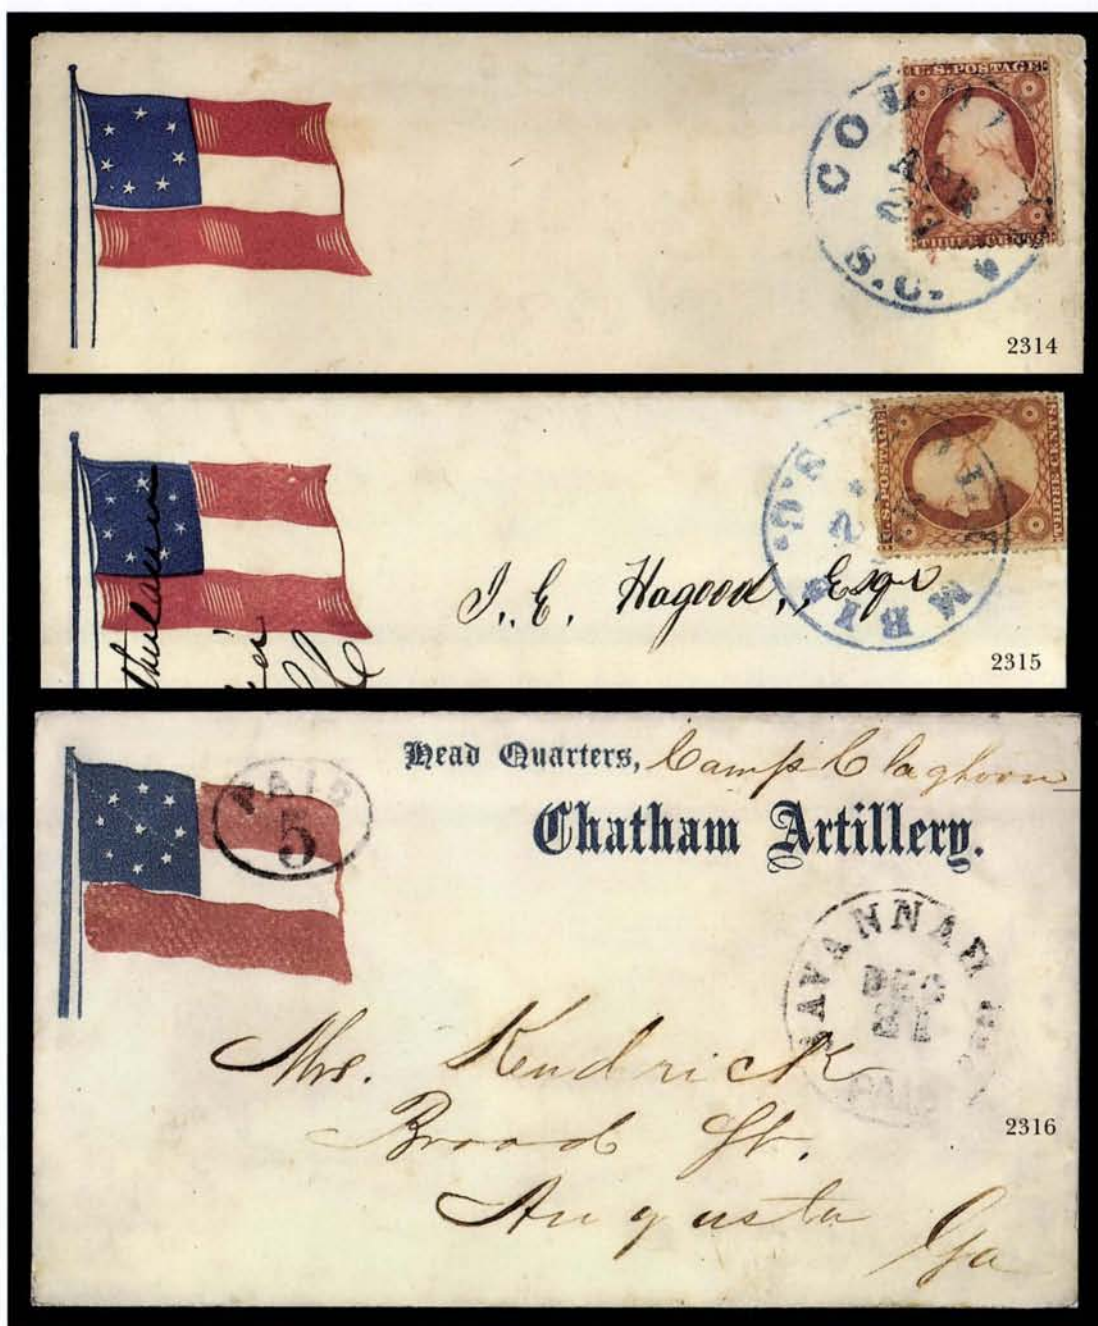 U.S. POSTAGE
THREE CENTS
COLU
S.C.
APR
2314
U.S. POSTAGE
THREE CENTS
MBIA
S.C.
J. E. Hagood, Esqr
2315
Head Quarters, Camp Claghorn
Chatham Artillery.
PAID
5
SAVANNAH
DEC
21
PAID
Mrs. Kendrick
Broad St.
Augusta
Ga
2316